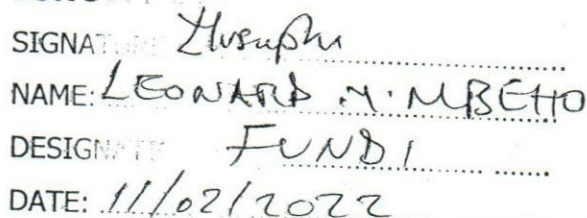 SIGNATURE
NAME: LEONARD M. MBEHO
DESIGNATE FUNDI
DATE: 11/02/2022